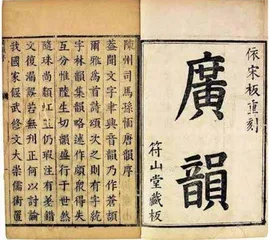 依宋板重刻
廣韻
符山堂藏板
陳州司馬孫愐唐韻序
蓋聞文字聿興音韻乃作蒼頡
爾雅為首詩頌次之則有字統
字林韻集韻略述作頗衆得失
互分惟陸生切韻盛行於世然
隨珠尚纇虹玉仍瑕注有差錯
文復漏誤若無刊正何以討論
我國家偃武修文大崇儒術置